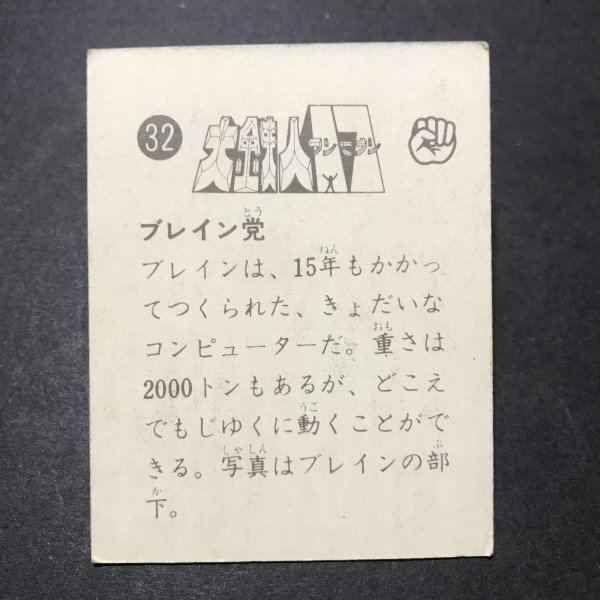 32 大鉄人ワンセブン 17
ブレイン党
とう
ブレインは、15年もかかっ
ねん
てつくられた、きょだいな
コンピューターだ。重さは
おも
2000トンもあるが、どこえ
でもじゆくに動くことがで
うご
きる。写真はブレインの部
しゃしん ぶ
下。
か